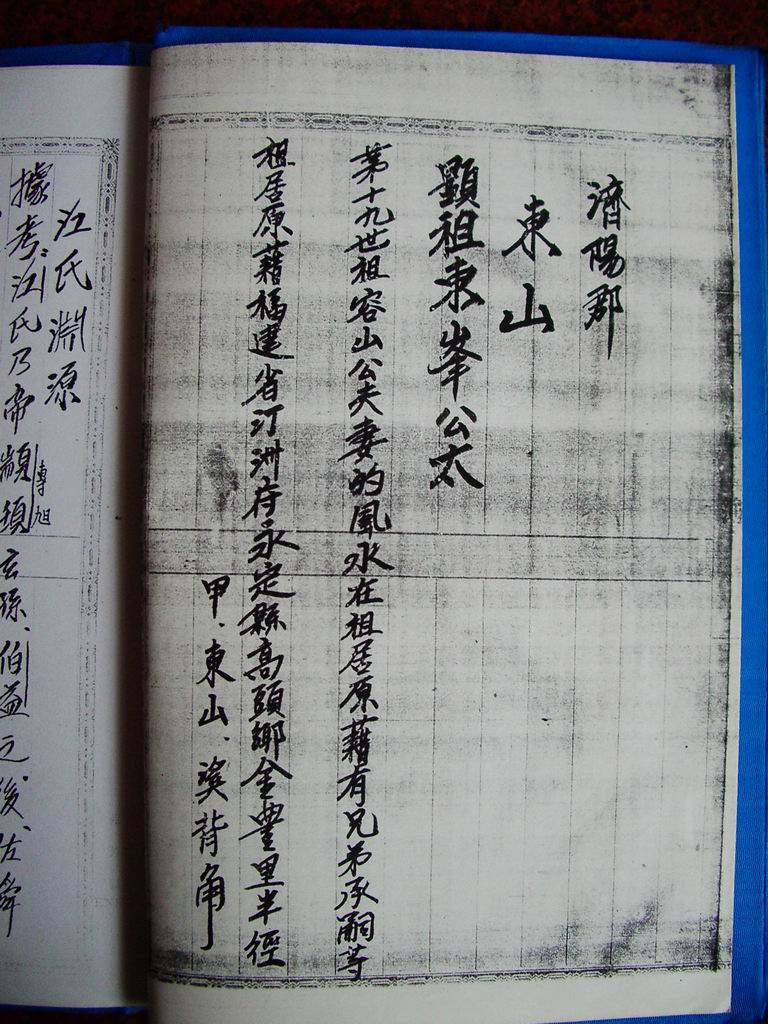 濟陽郡
東山
顯祖東峯公太
第十九世祖容山公夫妻的風水在祖居原藉有兄弟承嗣等
祖居原藉福建省汀洲府永定縣高頭鄉金豐里半徑
甲、東山、窠背角
江氏淵源
據考：江氏乃帝顓頊玄孫、伯益之後、佐舜
專旭